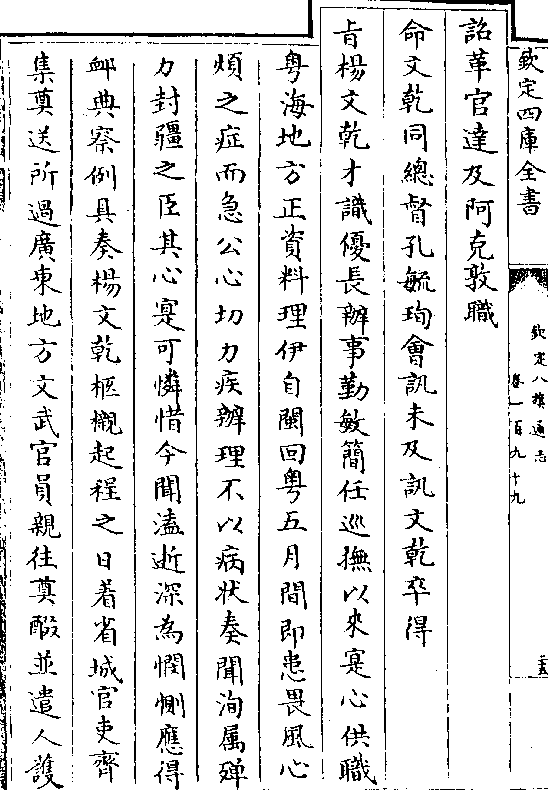 欽定四庫全書
欽定八旗通志
卷一百九十九
詔革官達及阿克敦職
命文乾同總督孔毓珣會訊未及訊文乾卒得
㫖楊文乾才識優長辦事勤敏簡任巡撫以來寔心供職
粤海地方正資料理伊自閩回粤五月間即患畏風心
煩之症而急公心切力疾辦理不以病狀奏聞洵屬殫
力封疆之臣其心寔可憐惜今聞溘逝深為憫惻應得
䘏典察例具奏楊文乾柩櫬起程之日着省城官吏齊
集奠送所過廣東地方文武官員親往奠醊並遣人護